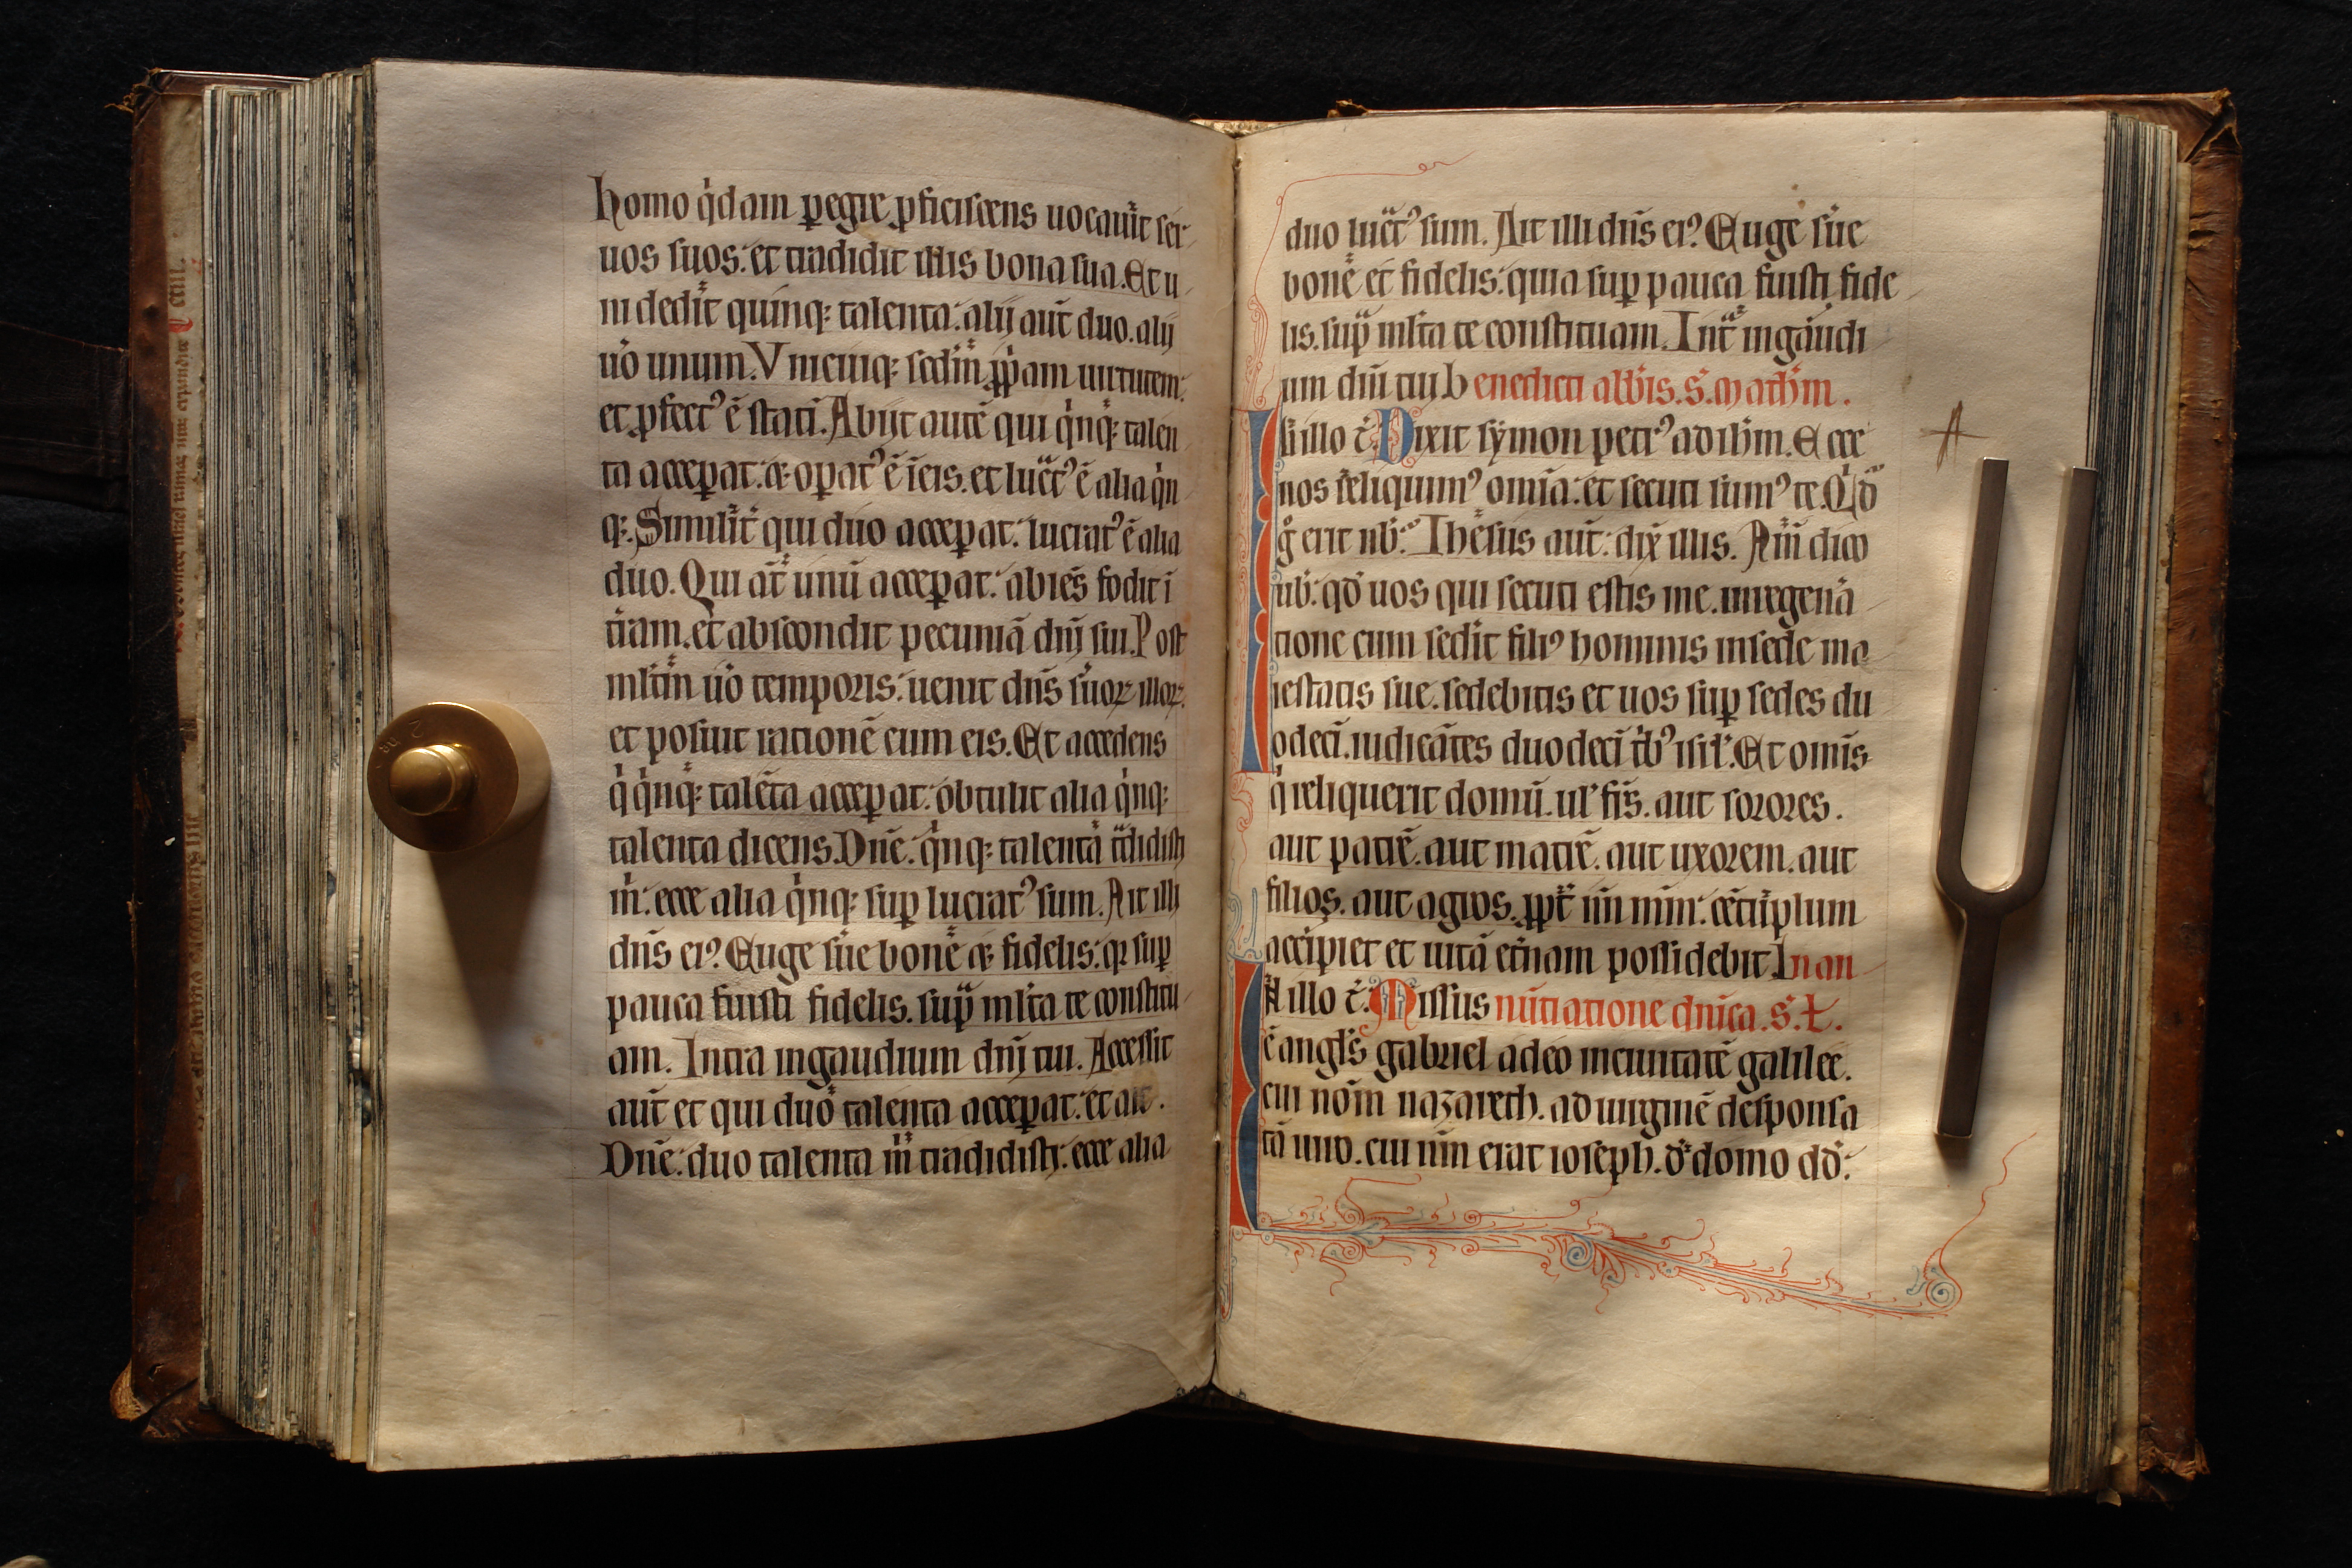 homo q̇dam ꝑegre ꝓficiscens uocau̇it ser
uos suos: et tradidit illis bona sua. Et u
ni dedit quinq: talenta: alij aut̄ duo. alij
u̇o unum. Vnicuiq: scd̄m ꝓp̄am uirtutem:
et ꝓfect᾽ ē stati͂. Abijt autē qui q̇nq: talen
ta acceꝑat: ⁊ opat᾽ ē ī eis. et luct᾽ ē alia q̇n
q:. Similit̄ qui duo acceꝑat: lucrat᾽ ē alia
duo. Qui at̄ unū acceꝑat: abiēs fodit ī
t̄ram. et abscondit pecuniā dn̄j sui. Post
ml̄tm̄ u̇o temporis: uenit dn̄s s̄uoꝝ illoꝝ.
et posuit rationē cum eis. Et accedens
q̇ q̇nq: talēta acceꝑat: obtulit alia q̇nq:
talenta dicens. Dn̄e: q̇nq: talenta t̄didisti
m̄: ecce alia q̇nq: suꝑ lucrat᾽ sum. Ait illi
dn̄s ei᾽. Euge s̄ue bone ⁊ fidelis: qꝛ suꝑ
pauca fuisti fidelis. suꝑ ml̄ta te constitu
am. Intra in gaudium dn̄j tui. Accessit
aut̄ et qui duo talenta acceꝑat: et ait.
Dn̄e: duo talenta m̄ tradidisti: ecce alia
duo luct᾽ sum. Ait illi dn̄s ei᾽. Euge s̄ue
bone et fidelis: quia suꝑ pauca fuisti fide
lis. suꝑ ml̄ta te constituam. Int̄ in gaudi
um dn̄i tui benedicti abb̄is. S. math̄m.
In illo t̄. Dixit symon petr᾽ ad ih̄m. Ecce
nos reliquim᾽ omīa: et secuti sum᾽ te. Q̇d
g̊ erit nb̄: Ihesus aut̄: dix̄ illis. Am̄ dico
ub̄: qd̄ uos qui secuti estis me. in regenā
tione cum sedit̄ fili᾽ hominis in sede ma
iestatis sue. sedebitis et uos suꝑ sedes du
odeci͂. iudicātes duodeci͂ tb᾽ isl̄. Et omīs
q̇ reliquerit domū. ul᾽ fr̄s. aut sorores.
aut patrē. aut matrē. aut uxorem. aut
filios. aut agros. ꝓpt̄ n̄n mm̄: cētuplum
accipiet et uitā et̄nam possidebit In an
In illo t̄. Missus nūtiatione dn̄ica. S. L.
ē angl̄s gabriel a deo in ciuitatē galilee.
cui nom̄ nazareth. ad uirginē desponsa
tā uiro. cui nm̄ erat ioseph. d᾽ domo dd̄: